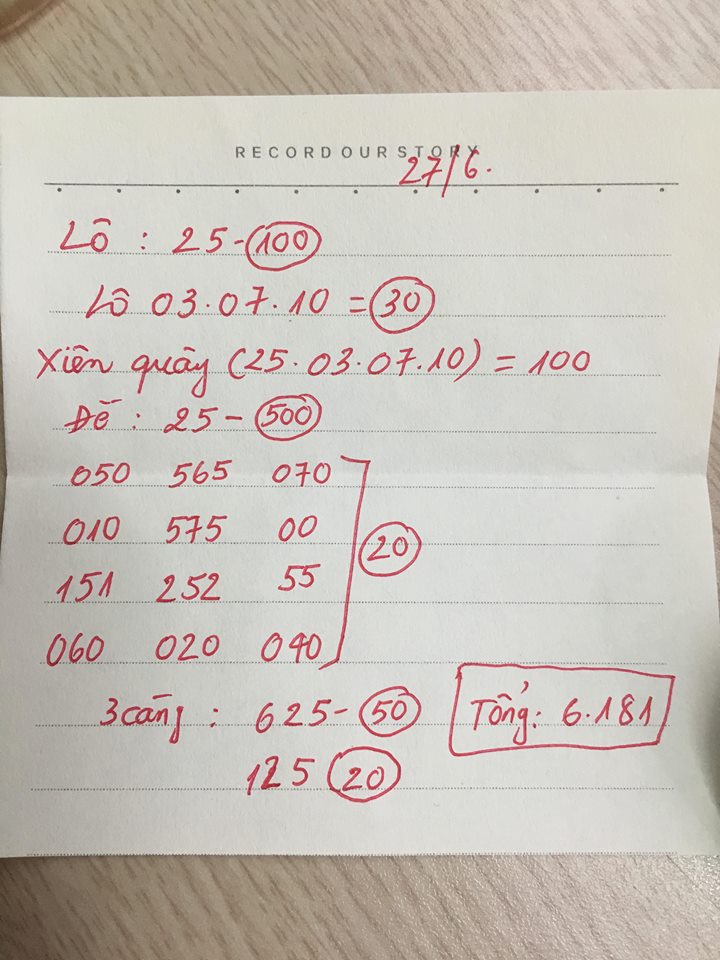 RECORD OUR STORY
27/6.
Lô : 25-100
Lô 03.07.10 = 30
Xiên quây (25.03.07.10) = 100
Đề : 25-500
050 565 070
010 575 00
20
151 252 55
060 020 040
3 càng : 625-50
Tổng: 6.181
125 20